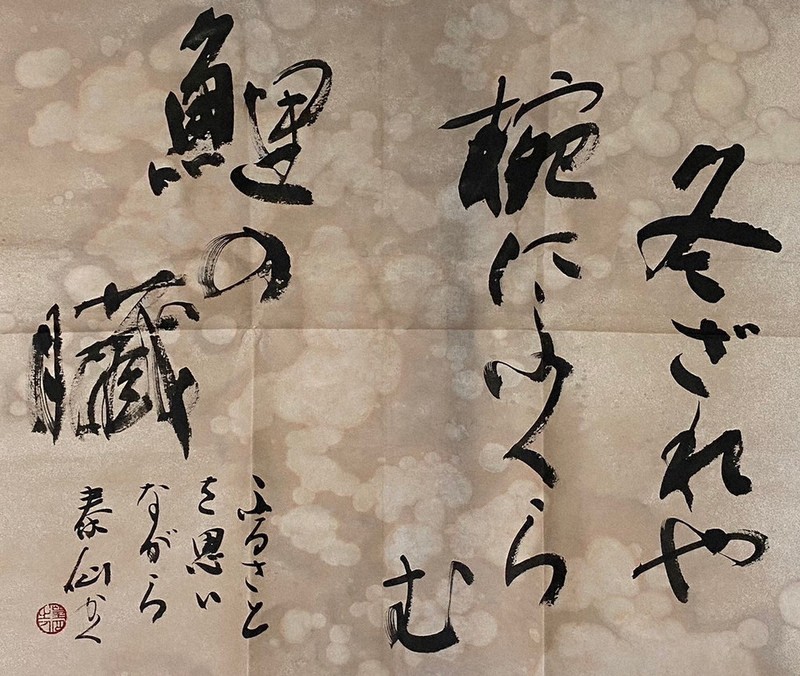 冬ざれや
椀にふくら
む
鯉の臓
ふるさと
を思い
ながら
泰仙かく